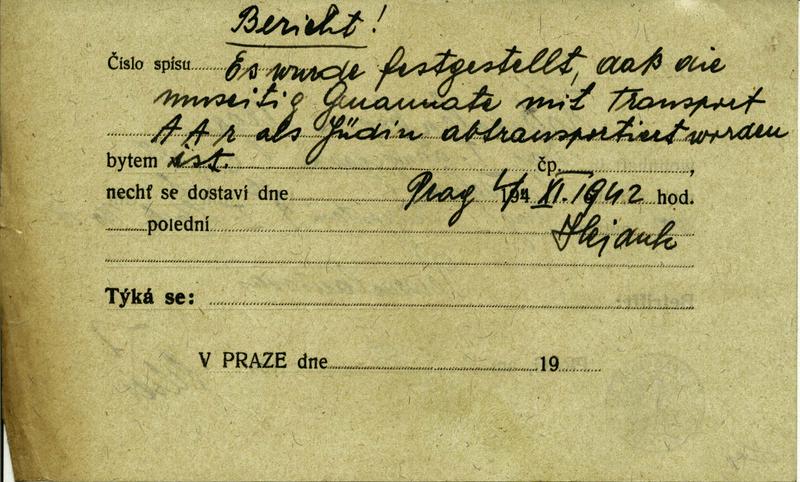 Bericht!
Číslo spisu Es wurde festgestellt, daß die
umseitig Genannte mit Transport
AAr als Jüdin abtransportiert worden
bytem ist. čp. ,
nechť se dostaví dne Prag 4/XI. 1942 194 hod.
polední
Týká se:
V PRAZE dne 19